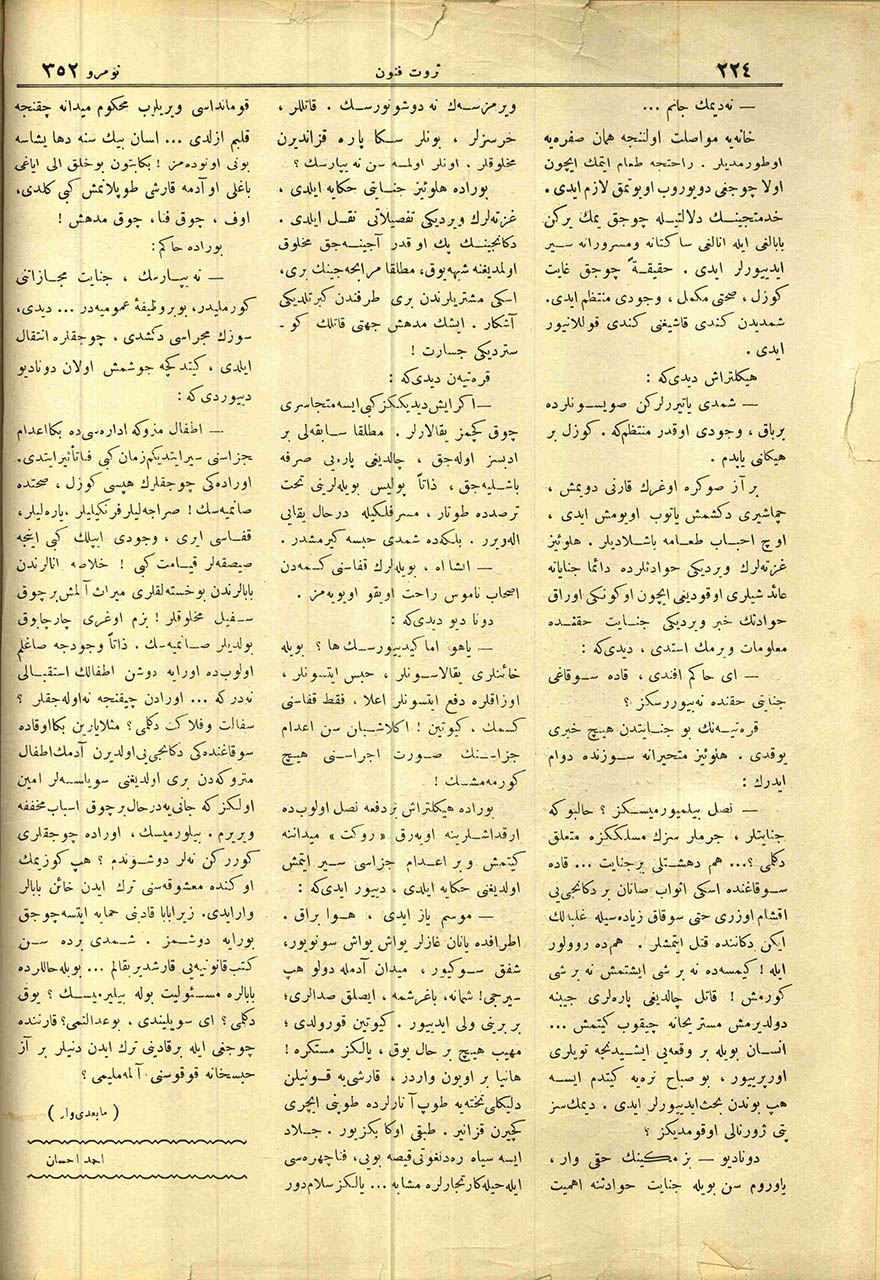 ٢٢٤
ثروت فنون
نومرو ٣٥٢
— نه‌دیمك جانم ...
خانه‌یه مواصلت اولننجه همان صفره‌یه
اوطوردیلر . راحتجه طعام ایتمك ایچون
اولا چوجغی دویوروب اویوتمق لازم ایدی .
خدمتجینك دلالتیله چوجق یمك یركن
بابالغی ایله انالغی ساكتانه ومسرورانه سیر
ایدییورلر ایدی . حقیقةً چوجق غایت
كوزل ، صحتی مكمل ، وجودی منتظم ایدی .
شمدیدن كندی قاشیغنی كندی قوللانیور
ایدی .
هیكلتراش دیدی‌كه :
— شمدی یاتیررلركن صویسونلرده
برباق ، وجودی اوقدر منتظم‌كه . كوزل بر
هیكلنی یاپدم .
بر آز صوكره اوغرك قارنی دویمش ،
چماشیری دكشمش یاتوب اویومش ایدی ،
اوچ احباب طعامه باشلادیلر . هلوئیز
غزته‌لرك ویردیكی حوادثلرده دائما جنایاته
عائد شیلری اوقودیغی ایچون اوكونكی اوراق
حوادثك خبر ویردیكی جنایت حقنده
معلومات ویرمك استدی ، دیدی‌كه :
— ای حاكم افندی ، قاده سوقاغی
جنایتی حقنده نه‌بیوررسكز ؟
قره‌تیه‌نك بو جنایتدن هیچ خبری
یوقدی . هلوئیز متحیرانه سوزنده دوام
ایدرك :
— نصل بیلمیورمیسكز ؟ حالبوكه
جنایتلر ، جرملر سزك مسلككزه متعلق
دكلمی ؟... هم دهشتلی برجنایت ... قاده
سوقاغنده اسكی اثواب صاتان بر دكانجی‌یی
اقشام اوزری حتی سوقاق زیاده‌سیله غلبه‌لك
ایكن دكاننده قتل ایتمشلر . هم‌ده روولور
ایله ! كیمسه‌ده نه بر شی ایشتمش نه بر شی
كورمش ! قاتل چالدیغی پاره‌لری جیبنه
دولدیرمش مستریحانه چیقوب كیتمش ...
انسان بویله بر وقعه‌یی ایشیدنجه تویلری
اورپرییور ، بو صباح نره‌یه كیتدم ایسه
هپ بوندن بحث ایدییورلر ایدی . دیمك سز
پتی ژورنالی اوقومدیكز ؟
دونادیو — بزمكینك حقی وار ،
یاوروم سن بویله جنایت حوادثنه اهمیت
ویرمزسه‌ك نه دوشونورسك . قاتللر ،
خرسزلر ، بونلر سكا پاره قزاندیرن
مخلوقلر . اونلر اولمسه سن نه یاپارسك ؟
بوراده هلوئیز جنایتی حكایه ایلدی ،
غزته‌لرك ویردیكی تفصیلاتی نقل ایلدی .
دكانجینك پك او قدر آجینه‌جق مخلوق
اولمدیغنه شبهه‌یوق، مطلقا مرابحه‌جینك بری،
اسكی مشتریلرندن بری طرفندن كبرتلدیكی
آشكار . ایشك مدهش جهتی قاتلك كو‍ـ
ستردیكی جسارت !
قره‌تیه‌ن دیدی‌كه :
— اكر ایش دیدیككز كبی ایسه متجاسری
چوق كچمز یقالارلر . مطلقا سابقه‌لی بر
ادبسز اوله‌جق ، چالدیغی پاره‌یی صرفه
باشلیه‌جق ، ذاتاً پولیس بویله‌لرینی تحت
ترصدده طوتار ، مسرفلكیله درحال یقایی
اله‌ویرر . بلكه‌ده شمدی حبسه كیرمشدر .
— انشا اه ، بویله‌لرك قفاسنی كسمه‌دن
اصحاب ناموس راحت اویقو اویویه‌مز .
دونا دیو دیدی‌كه :
— یاهو اما كیدییورسك ها ؟ بویله
خائنلری یقالاسونلر ، حبس ایتسونلر ،
اوزاقلره دفع ایتسونلر اعلا ، فقط قفاسنی
كسمك ، كیوتین ! اكلاشیلان سن اعدام
جزاسنك صورت اجراسنی هیچ
كورمه‌مشسك !
بوراده هیكلتراش بردفعه نصل اولوب‌ده
ارقداشلرینه اویه‌رق « روكت » میداننه
كیتمش و بر اعدام جزاسی سیر ایتمش
اولدیغنی حكایه ایلدی ، دییور ایدی‌كه :
— موسم یاز ایدی ، هوا براق .
اطرافده یانان غازلر یواش یواش سونویور،
شفق سوكیور ، میدان آدمله دولو هپ
سیرجی! شماته، باغرشمه ، ایصلق صدالری؛
بر برینی ولی ایدییور . كیوتین قورولدی ؛
مهیب هیچ بر حال یوق ، یالكز مستكره !
هانیا بر اویون واردر ، قارشی‌یه قونیلن
دلیكلی تخته‌یه طوپ آتارلرده طوپنی ایچری
كچیرن قزانیر . طبقی اوكا بكزیور . جلاد
ایسه سیاه ره‌دنغوتی قیصه بویلی، فنا چهره‌سی
ایله حیله‌كار تجارلره مشابه ... یالكز سلام دور
قوماندا‌سی ویریلوب محكوم میدانه چقنجه
قلبم ازلدی ... انسان بیك سنه دها یشاسه
بونی اونوده‌مز ! بكابتون بوخلق الی ایاغی
باغلی او آدمه قارشی طوپلانمش كبی كلدی،
اوف ، چوق فنا ، چوق مدهش !
بوراده حاكم :
— نه یاپارسك ، جنایت مجازاتنی
كورملیدر، بوبروظیفهٔ عمومیه‌در ... دیدی،
سوزك مجراسی دكشدی . چوجقلره انتقال
ایلدی ، كیتدكچه جوشمش اولان دونادیو
دییوردی‌كه :
— اطفال متروكه اداره‌سی‌ده بكااعدام
جزاسنی سیر ایتدیكم زمان كبی فناتأثیر ایتدی.
اوراده‌كی چوجقلرك هپسی كوزل ، صحتده
صانمیه‌سك ! صراجه‌لیلر فرنكیلیلر، یاره‌لیلر،
قفاسی ایری ، وجودی ایپلك كبی اینجه
صیصقه‌لر قیامت كبی ! خلاصه انالرندن
بابالرندن بوخسته‌لقلری میراث آلمش برچوق
سفیل مخلوقلر ! بزم اوغری چارچابوق
بولدیلر صانمیه‌سك . ذاتاً وجودجه صاغلم
اولوب‌ده اورایه دوشن اطفالك استقبالی
نه‌در كه ... اورادن چیقنجه نه‌اوله‌جقلر ؟
سفالت وفلاكت دكلمی ؟ مثلایارین بكااوقاده
سوقاغنده‌كی دكانجی‌یی‌اولدیرن آدمك اطفال
متروكه‌دن بری اولدیغنی سویلسه‌لر امین
اولكز كه جانی‌یه درحال برچوق اسباب مخففه
ویریرم . بیلورمیسك ، اوراده چوجقلری
كوررركن نه‌لر دوشوندم ؟ هپ كوزیمك
اوكنده معشوقه‌سنی ترك ایدن خائن بابالر
وارایدی. زیرابابا قادینی حمایه ایتسه چوجق
بورایه دوشمز . شمدی برده سن
كتب قانونیه‌یی قارشدیر بقالم ... بویله حاللرده
بابالره مسئولیت بوله بیلیرمیسك ؟ یوق
دكلمی ؟ ای سویلیندی ، بوعدالتمی؟ قارننده
چوجغی ایله برقادینی ترك ایدن دنیلر بر آز
حبسخانه قوقوسنی آلمه‌ملیمی ؟
( مابعدی‌وار )
احمد احسان